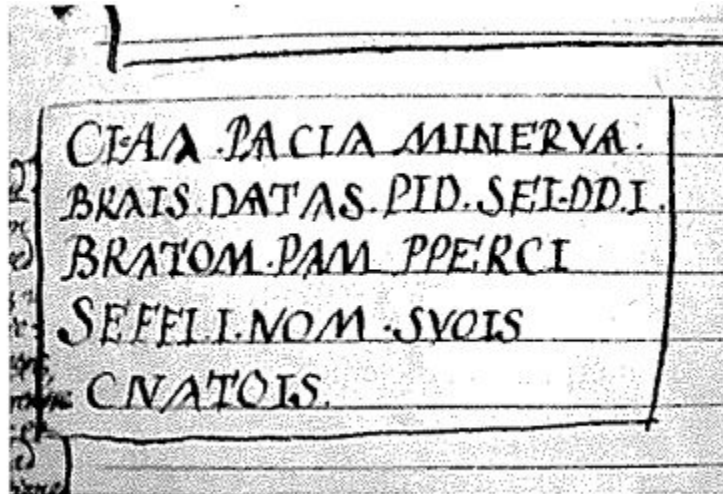 CI·AA·PACIA MINERVA·
BRAIS·DATAS·PID·SEI·DD·I·
BRATOM·PAM PPERCI
SEFFI·I·NOM·SVOIS
CNATOIS·